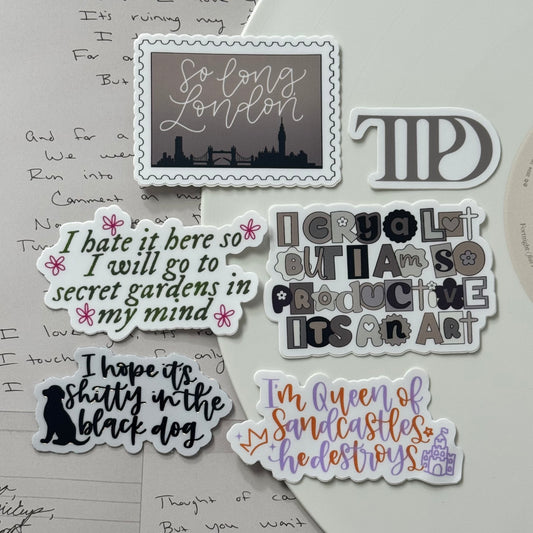 Its ruining my
I
For
But
So long
London
TTPD
And for a
We we
Run into
Comment on
No
I hate it here so
I will go to
secret gardens in
my mind
I CRY A LOT
BUT I AM SO
PRODUCTIVE
ITS AN ART
Fortnight
I lo
I touch for only
I
I hope it's
shitty in the
black dog
I'm Queen of
Sandcastles
he destroys
Thought of ca
But you want